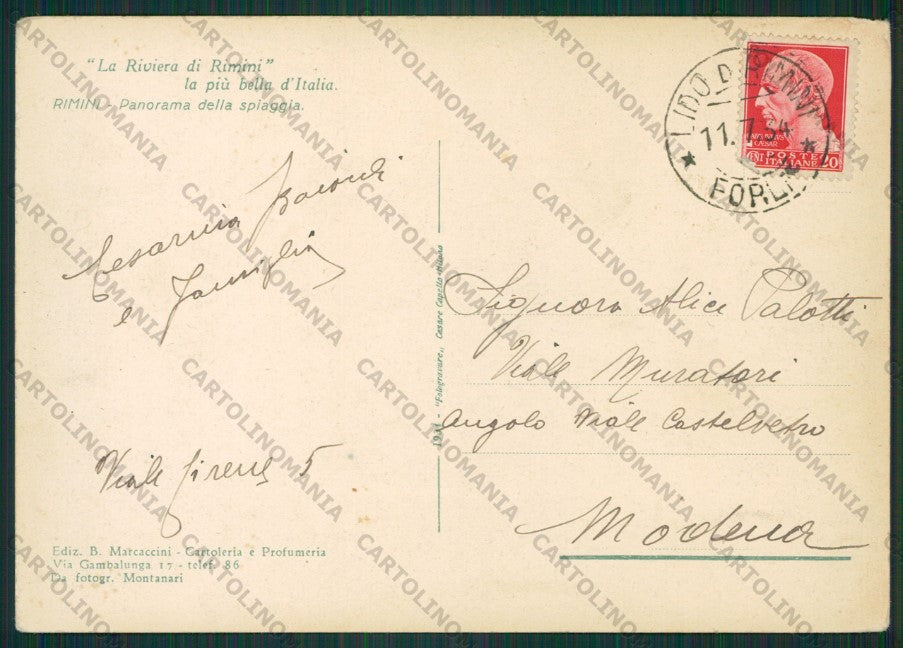 "La Riviera di Rimini"
la più bella d'Italia.
RIMINI - Panorama della spiaggia.
LIDO DI RIMINI
11.7.34
FORLI
IVLIVS
CAESAR
POSTE
ITALIANE
20
Cesarina
e famiglia
Viale Sirene 5
1934 - "Fotogravure,, Cesare Capello - Milano
Signora Alice Palotti
Viale Muratori
angolo Viale Castelvetro
Modena
Ediz. B. Marcaccini - Cartoleria e Profumeria
Via Gambalunga 17 - telef. 86
Da fotogr. Montanari
CARTOLINOMANIA